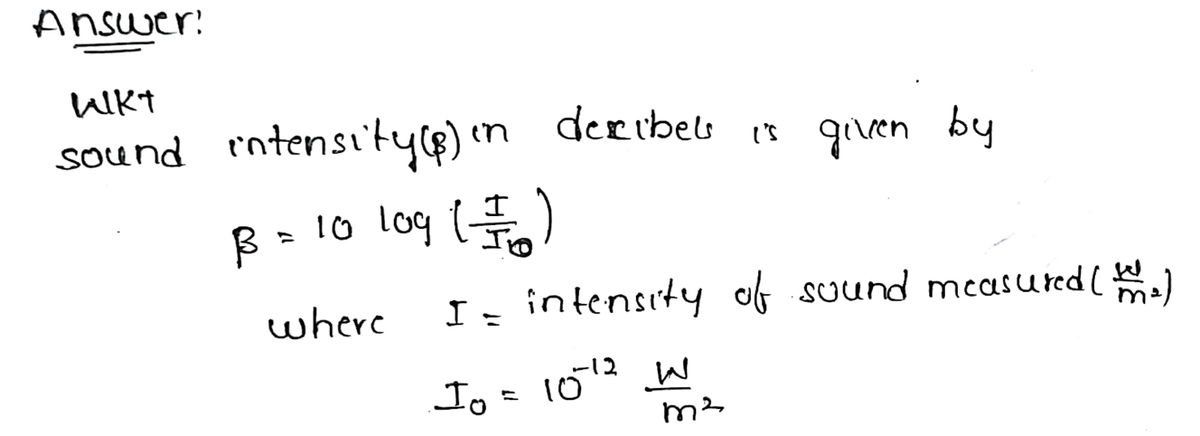 Answer:
WKT
sound intensity(β) in decibels is given by
β = 10 log (I/I₀)
where I = intensity of sound measured (W/m²)
I₀ = 10⁻¹² W/m²